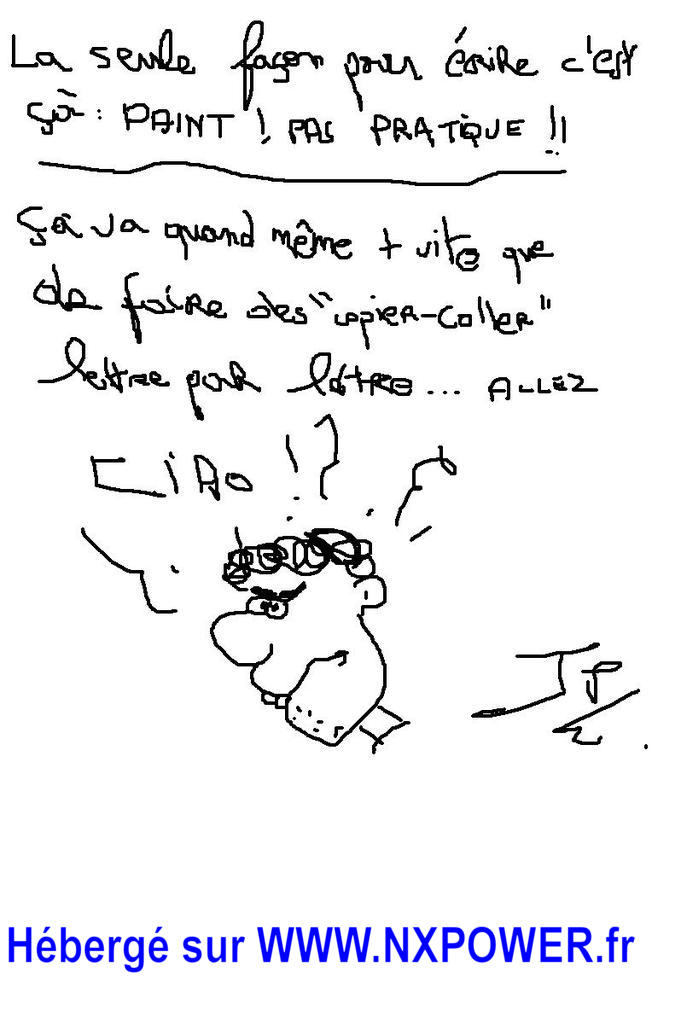 La seule façon pour écrire c'est
çà : PAINT ! PAS PRATIQUE !!
çà va quand même + vite que
de faire des "copier-coller"
lettre par lettre... ALLEZ
CIAO !?
Hébergé sur WWW.NXPOWER.fr